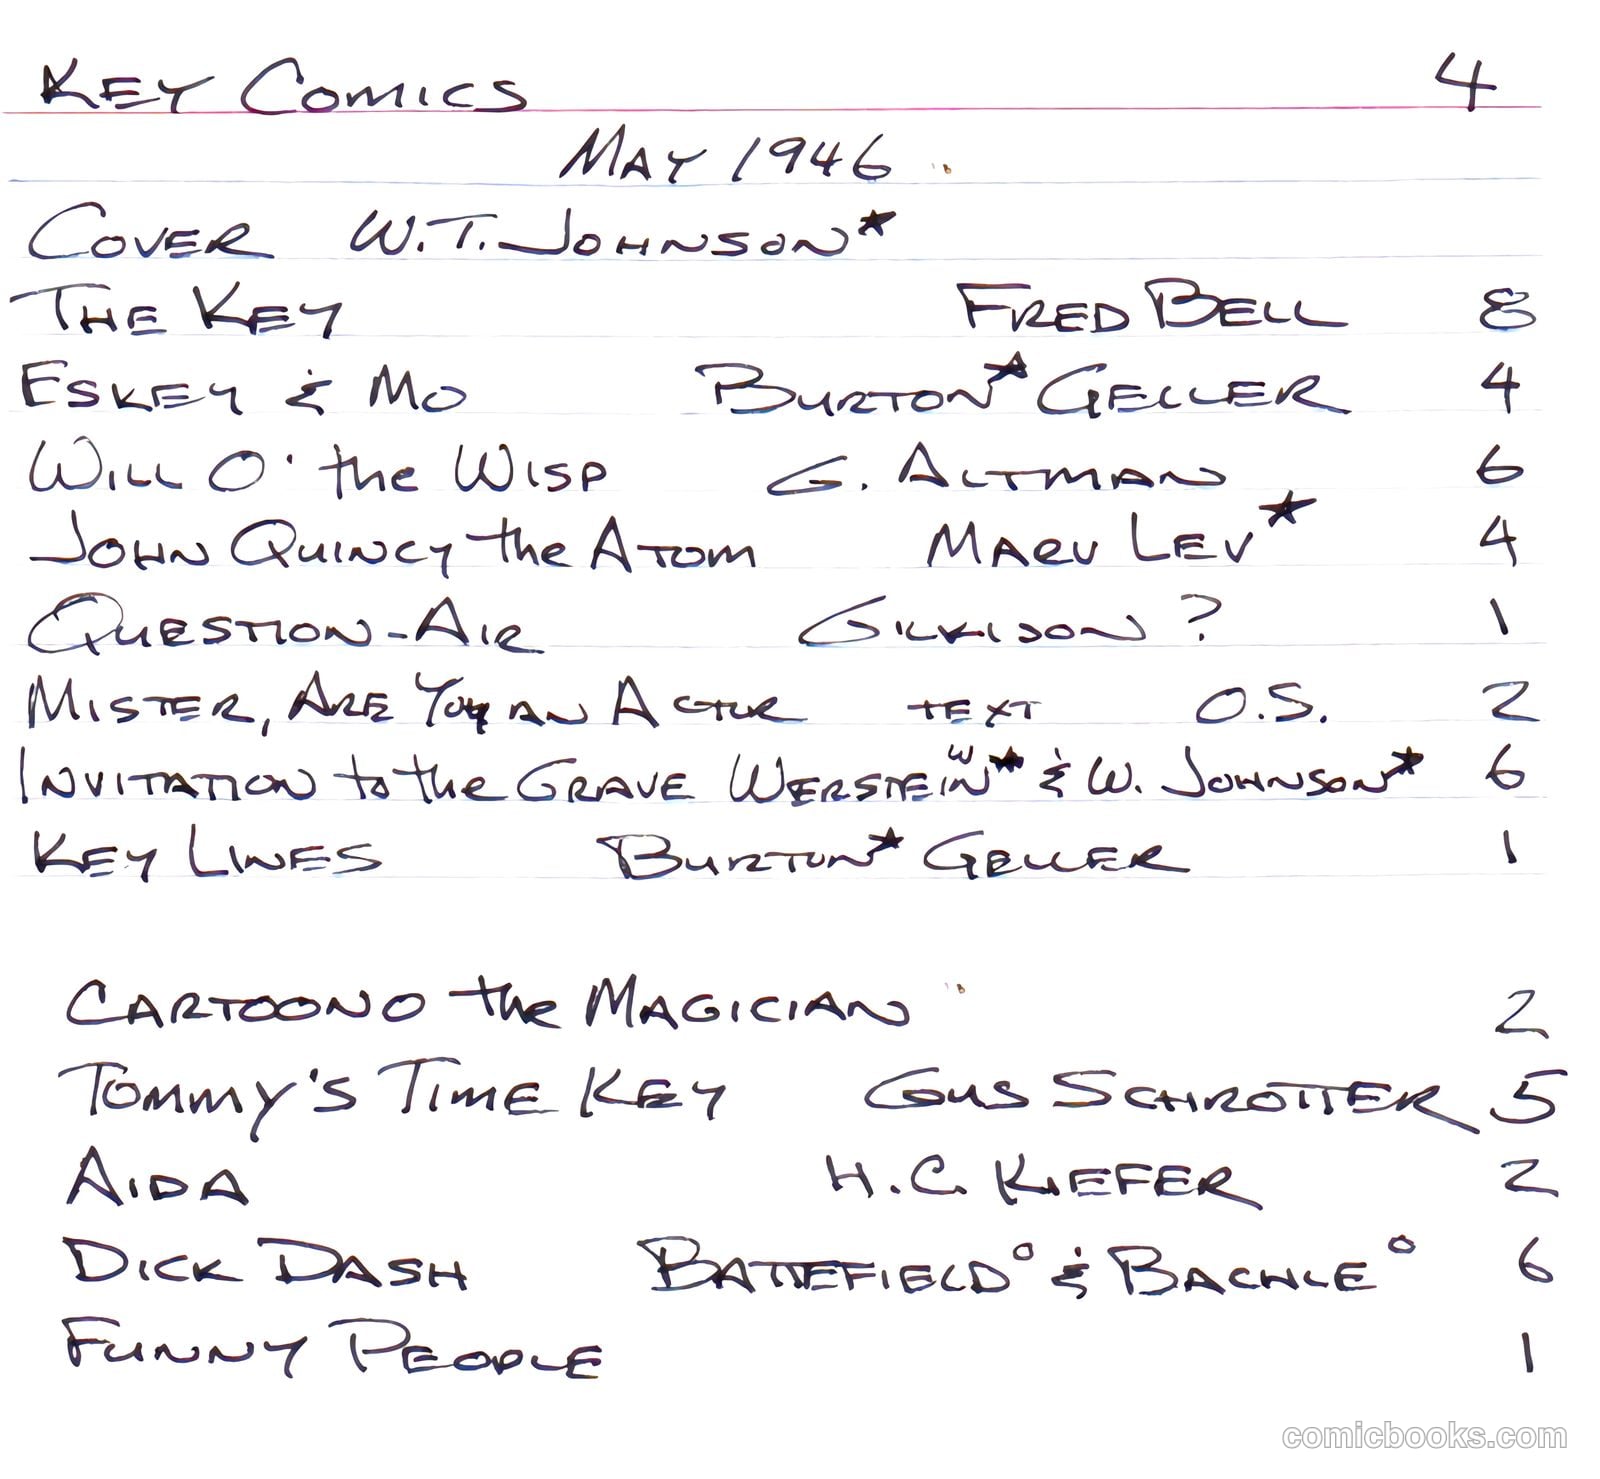 KEY COMICS 4
MAY 1946
COVER W.T. JOHNSON*
THE KEY FRED BELL 8
ESKEY & MO BURTON* GELLER 4
WILL O' the WISP G. ALTMAN 6
JOHN QUINCY the ATOM MARV LEV* 4
QUESTION-AIR GILKISON ? 1
MISTER, ARE YOU AN ACTUR TEXT O.S. 2
INVITATION to the GRAVE WERSTEIN W* & W. JOHNSON* 6
KEY LINES BURTON* GELLER 1
CARTOONO the MAGICIAN 2
TOMMY'S TIME KEY GUS SCHROTTER 5
AIDA H.C. KIEFER 2
DICK DASH BATTEFIELD° & BACHLE° 6
FUNNY PEOPLE 1
comicbooks.com